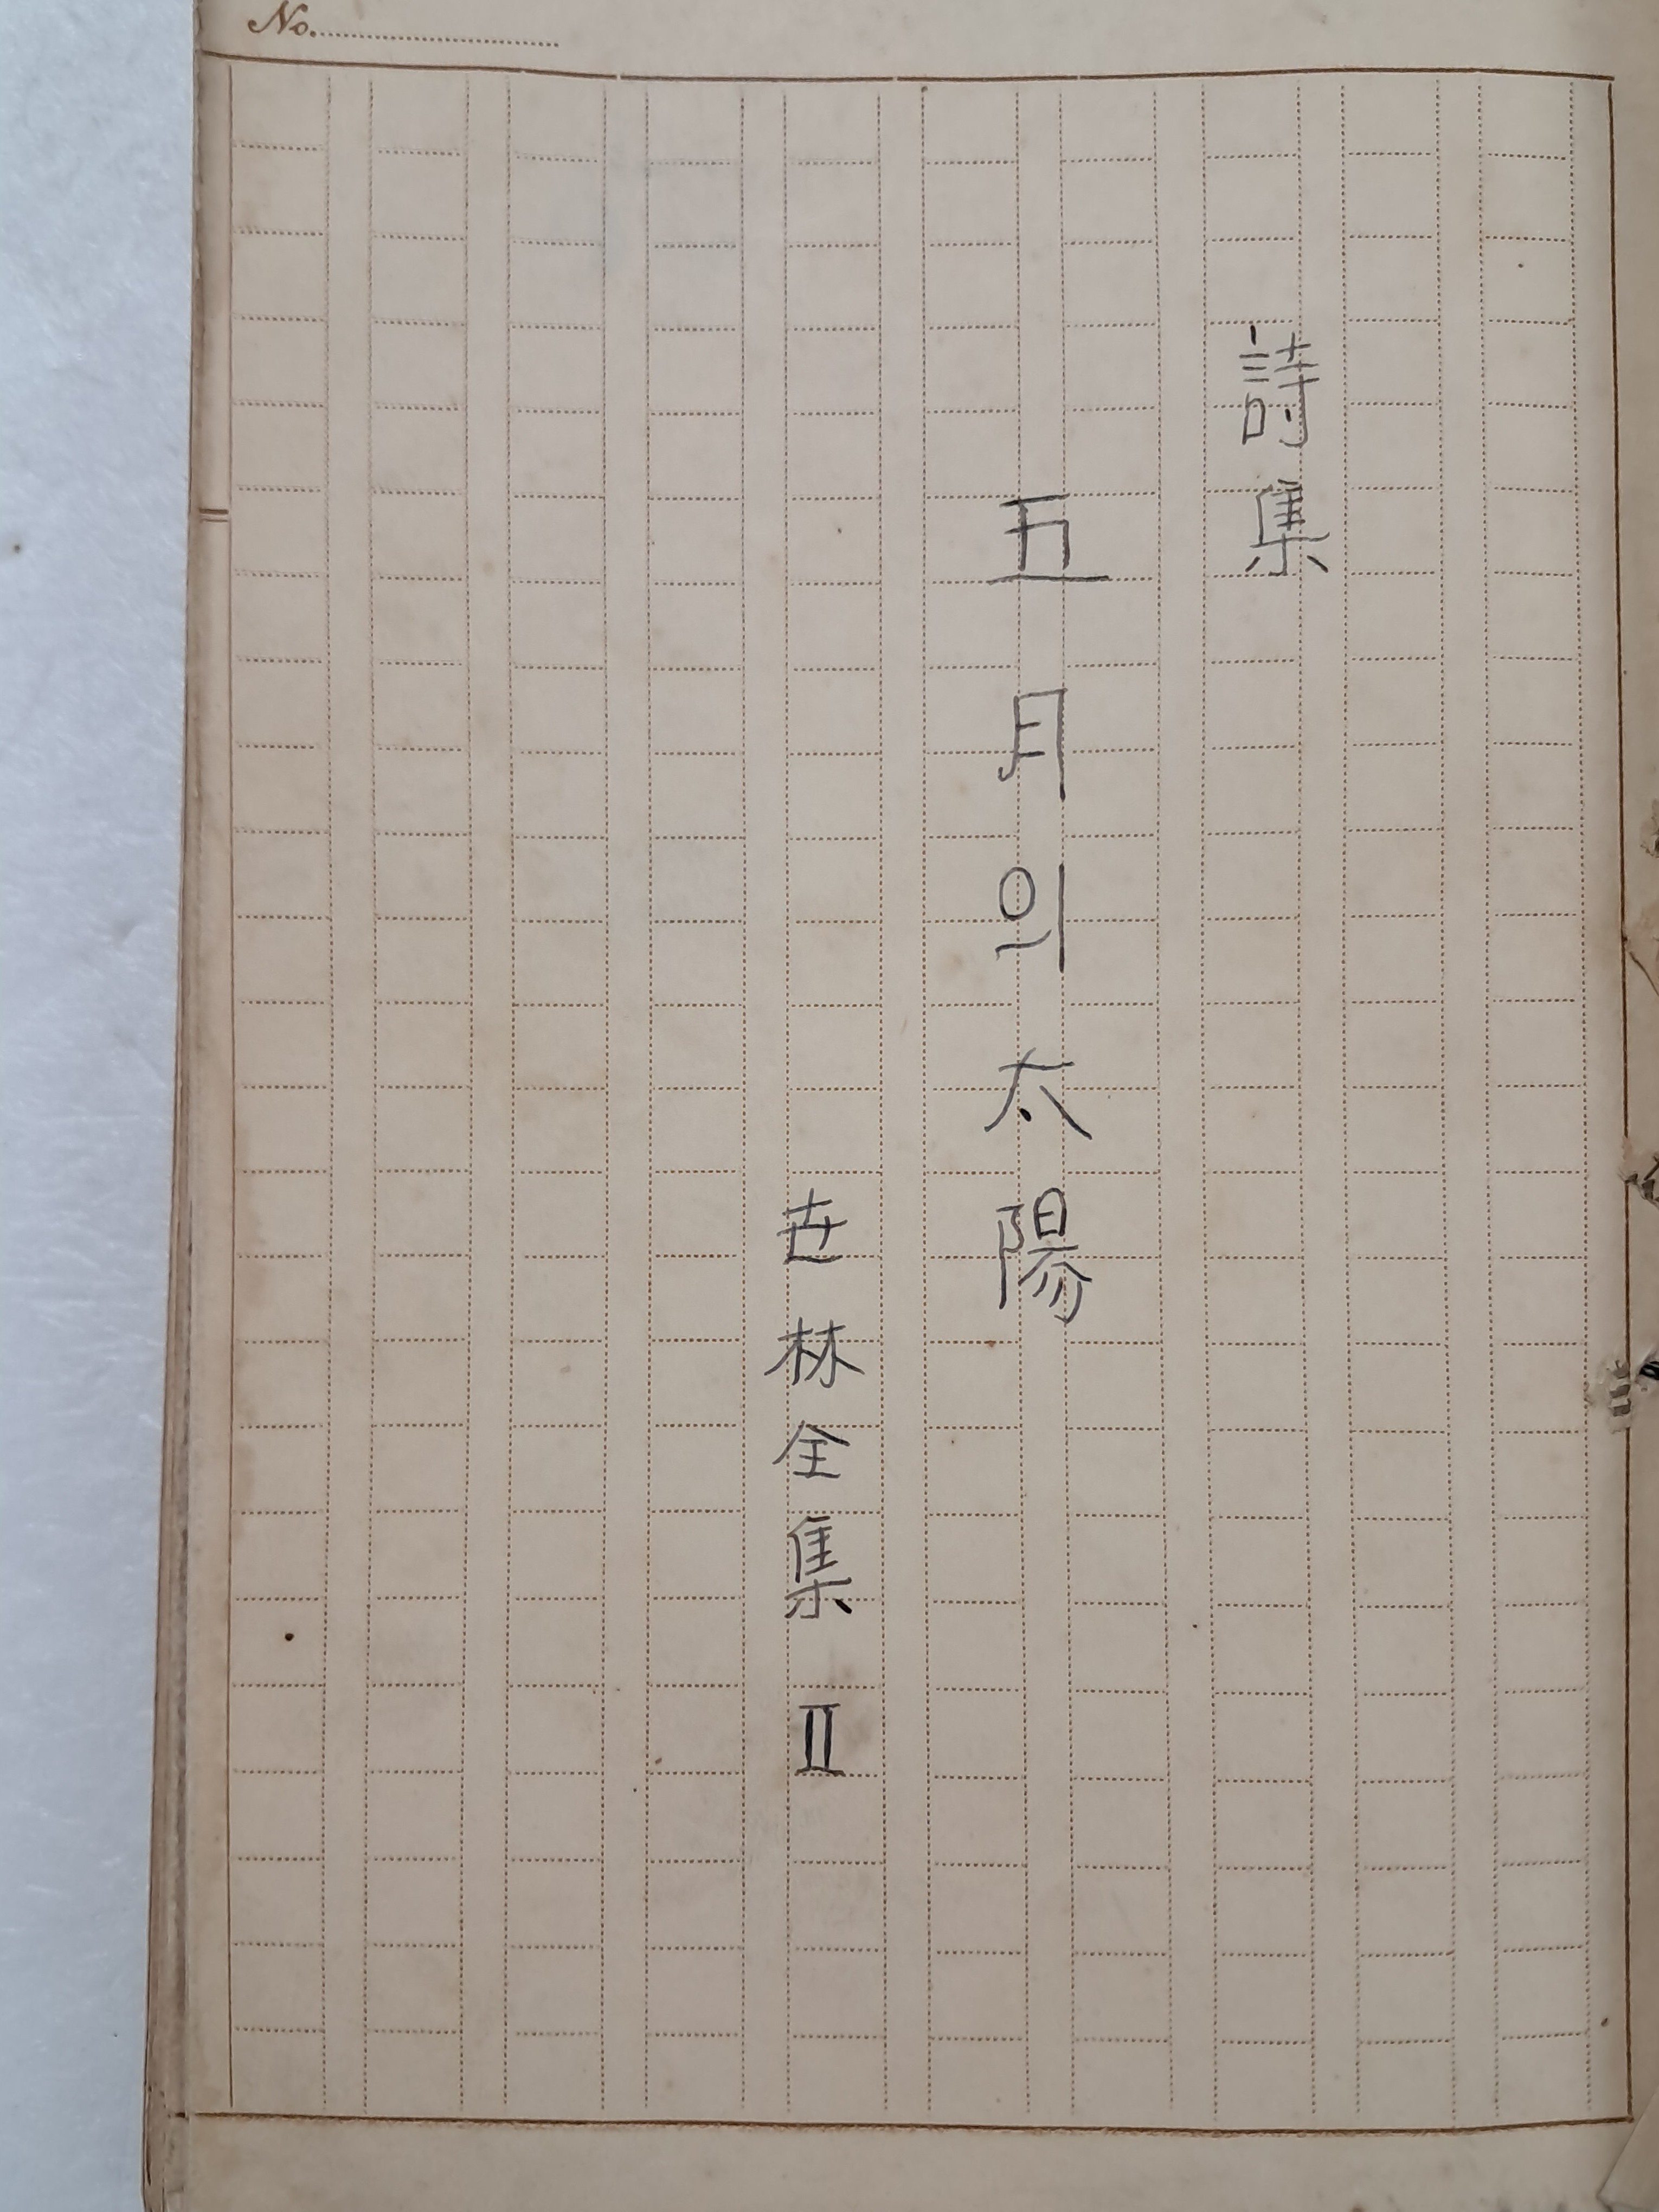 No.
詩集
五月의太陽
世林全集 Ⅱ